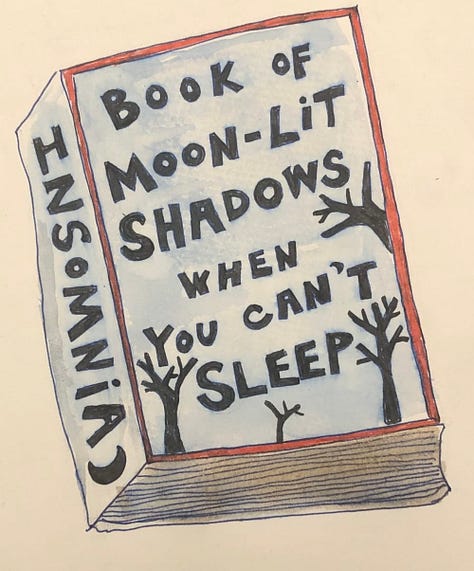 BOOK OF
MOON-LiT
SHADOWS
WHEN
YOU CAN'T
SLEEP
INSOMNiA